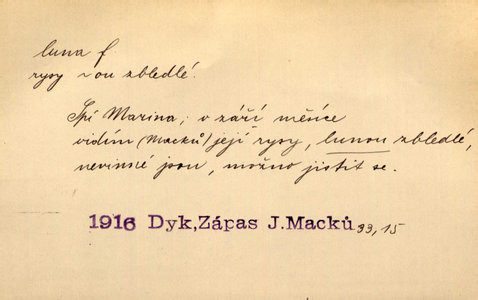 luna f.
rysy ~ou zbledlé.
Spí Marina; v září měsíce
vidím (Macků) její rysy, lunou zbledlé,
nevinné jsou, možno jistit se.
1916 Dyk, Zápas J. Macků 33, 15